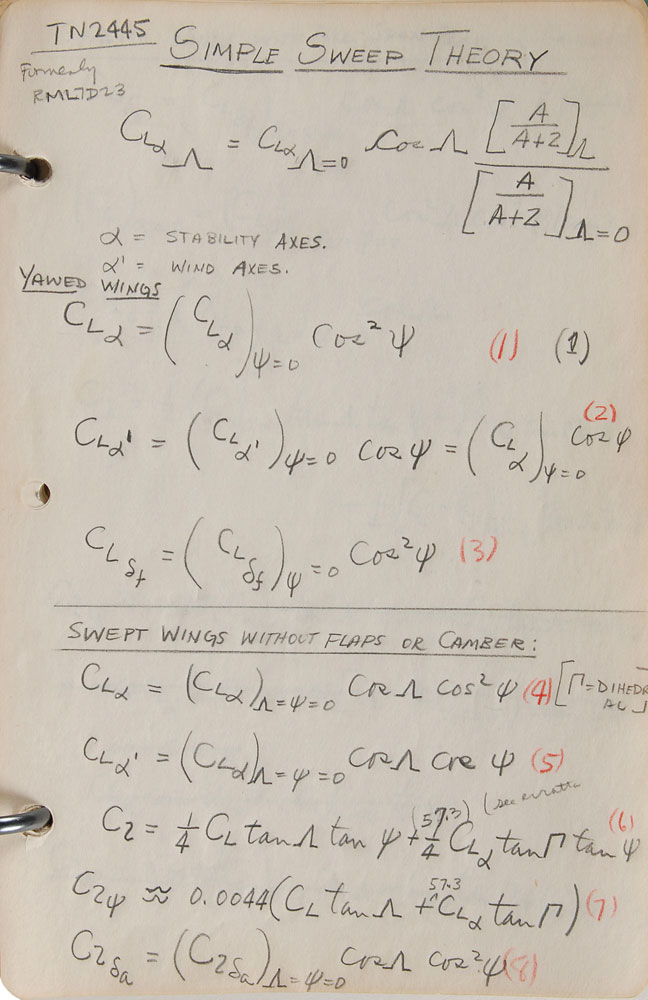 TN2445
SIMPLE SWEEP THEORY
Formerly
RML7D23
C_{Lα_Λ} = C_{Lα_{Λ=0}} Cos Λ [A/(A+2)]_Λ / [A/(A+2)]_{Λ=0}
α = STABILITY AXES.
α' = WIND AXES.
YAWED WINGS
C_{Lα} = (C_{Lα})_{ψ=0} Cos² ψ (1) (1)
C_{Lα'} = (C_{Lα'})_{ψ=0} Cos ψ = (C_{Lα})_{ψ=0} Cos ψ (2)
C_{Lδf} = (C_{Lδf})_{ψ=0} Cos² ψ (3)
SWEPT WINGS WITHOUT FLAPS OR CAMBER:
C_{Lα} = (C_{Lα})_{Λ=ψ=0} Cos Λ cos² ψ (4) [Γ=DIHEDRAL]
C_{Lα'} = (C_{Lα})_{Λ=ψ=0} Cos Λ Cos ψ (5)
C_l = 1/4 C_L tan Λ tan ψ + (57.3)/4 C_{Lα} tan Γ tan ψ (see errata (6)
C_{lψ} ≈ 0.0044(C_L tan Λ + 57.3 C_{Lα} tan Γ) (7)
C_{lδa} = (C_{lδa})_{Λ=ψ=0} Cos Λ Cos² ψ (8)